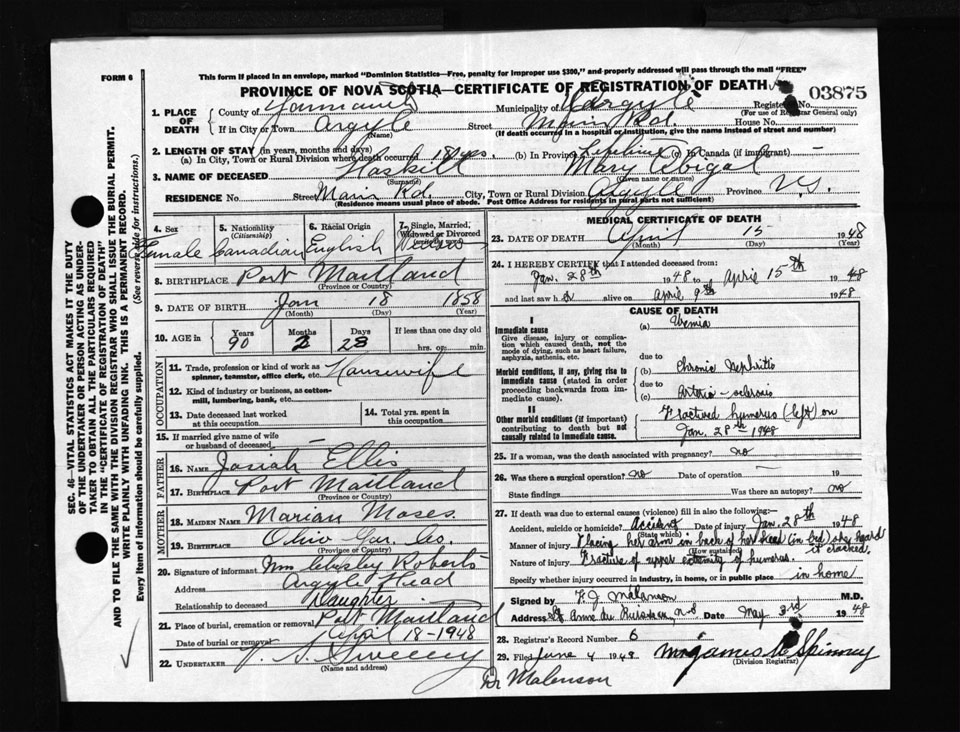 FORM 6
This form if placed in an envelope, marked "Dominion Statistics—Free, penalty for improper use $300," and properly addressed will pass through the mail "FREE"
PROVINCE OF NOVA SCOTIA—CERTIFICATE OF REGISTRATION OF DEATH
03875
1. PLACE OF DEATH
County of Yarmouth Municipality of Argyle Registered No.
(For use of Registrar General only)
If in City or Town Argyle Street Main Rd. House No.
(Name) (If death occurred in a hospital or institution, give the name instead of street and number)
2. LENGTH OF STAY (in years, months and days)
(a) In City, Town or Rural Division where death occurred 18 yrs. (b) In Province Lifetime (c) In Canada (if immigrant) —
3. NAME OF DECEASED Haskell Mary Abigal
(Surname) (Given name or names)
RESIDENCE No. Street Main Rd. City, Town or Rural Division Argyle Province N.S.
(Residence means usual place of abode. Post Office Address for residents in rural parts not sufficient)
4. Sex 5. Nationality (Citizenship) 6. Racial Origin 7. Single, Married, Widowed or Divorced (write the word)
Female Canadian English Widow
8. BIRTHPLACE Port Maitland
(Province or Country)
9. DATE OF BIRTH Jan 18 1858
(Month) (Day) (Year)
10. AGE in Years Months Days If less than one day old
90 2 28 hrs. or min.
OCCUPATION
11. Trade, profession or kind of work as spinner, teamster, office clerk, etc. Housewife
12. Kind of industry or business, as cotton-mill, lumbering, bank, etc.
13. Date deceased last worked at this occupation
14. Total yrs. spent in this occupation
15. If married give name of wife or husband of deceased —
FATHER
16. NAME Josiah Ellis
17. BIRTHPLACE Port Maitland
(Province or Country)
MOTHER
18. MAIDEN NAME Marian Moses
19. BIRTHPLACE Ohio Yar. Co.
(Province or Country)
20. Signature of informant Mrs Roberts
Address Argyle Head
Relationship to deceased Daughter
21. Place of burial, cremation or removal Port Maitland
Date of burial or removal April 18-1948
22. UNDERTAKER V. S. Sweeny
(Name and address)
MEDICAL CERTIFICATE OF DEATH
23. DATE OF DEATH April 15 1948
(Month) (Day)
24. I HEREBY CERTIFY that I attended deceased from:
Jan. 28th 1948 to April 15th 1948
and last saw her alive on April 9th 1948
CAUSE OF DEATH
I
Immediate cause
Give disease, injury or complication which caused death, not the mode of dying, such as heart failure, asphyxia, asthenia, etc.
(a) Uremia
due to
Morbid conditions, if any, giving rise to immediate cause (stated in order proceeding backwards from immediate cause).
(b) Chronic Nephritis
due to
(c) Arterio-sclerosis
II
Other morbid conditions (if important) contributing to death but not causally related to immediate cause.
Fractured humerus (left) on
Jan. 28th 1948
25. If a woman, was the death associated with pregnancy? no
26. Was there a surgical operation? no Date of operation — 19
State findings Was there an autopsy? no
27. If death was due to external causes (violence) fill in also the following:-
Accident, suicide or homicide? Accident Date of injury Jan. 28th 1948
(State which)
Manner of injury Placing her arm in back of her head (in bed) she heard it cracked.
(How sustained)
Nature of injury Fracture of upper extremity of humerus.
Specify whether injury occurred in industry, in home, or in public place in home
Signed by F. J. Melanson M.D.
Address St. Anne du Ruisseau, N.S. Date May 3rd 1948
28. Registrar's Record Number 6
29. Filed June 4 1948 Mrs James Spinney
(Division Registrar)
Dr Malenson
SEC. 46—VITAL STATISTICS ACT MAKES IT THE DUTY
OF THE UNDERTAKER OR PERSON ACTING AS UNDER-
TAKER TO OBTAIN ALL THE PARTICULARS REQUIRED
IN THE "CERTIFICATE OF REGISTRATION OF DEATH"
AND TO FILE THE SAME WITH THE DIVISION REGISTRAR WHO SHALL ISSUE THE BURIAL PERMIT.
WRITE PLAINLY WITH UNFADING INK. THIS IS A PERMANENT RECORD.
Every item of information should be carefully supplied. (See reverse side for instructions.)